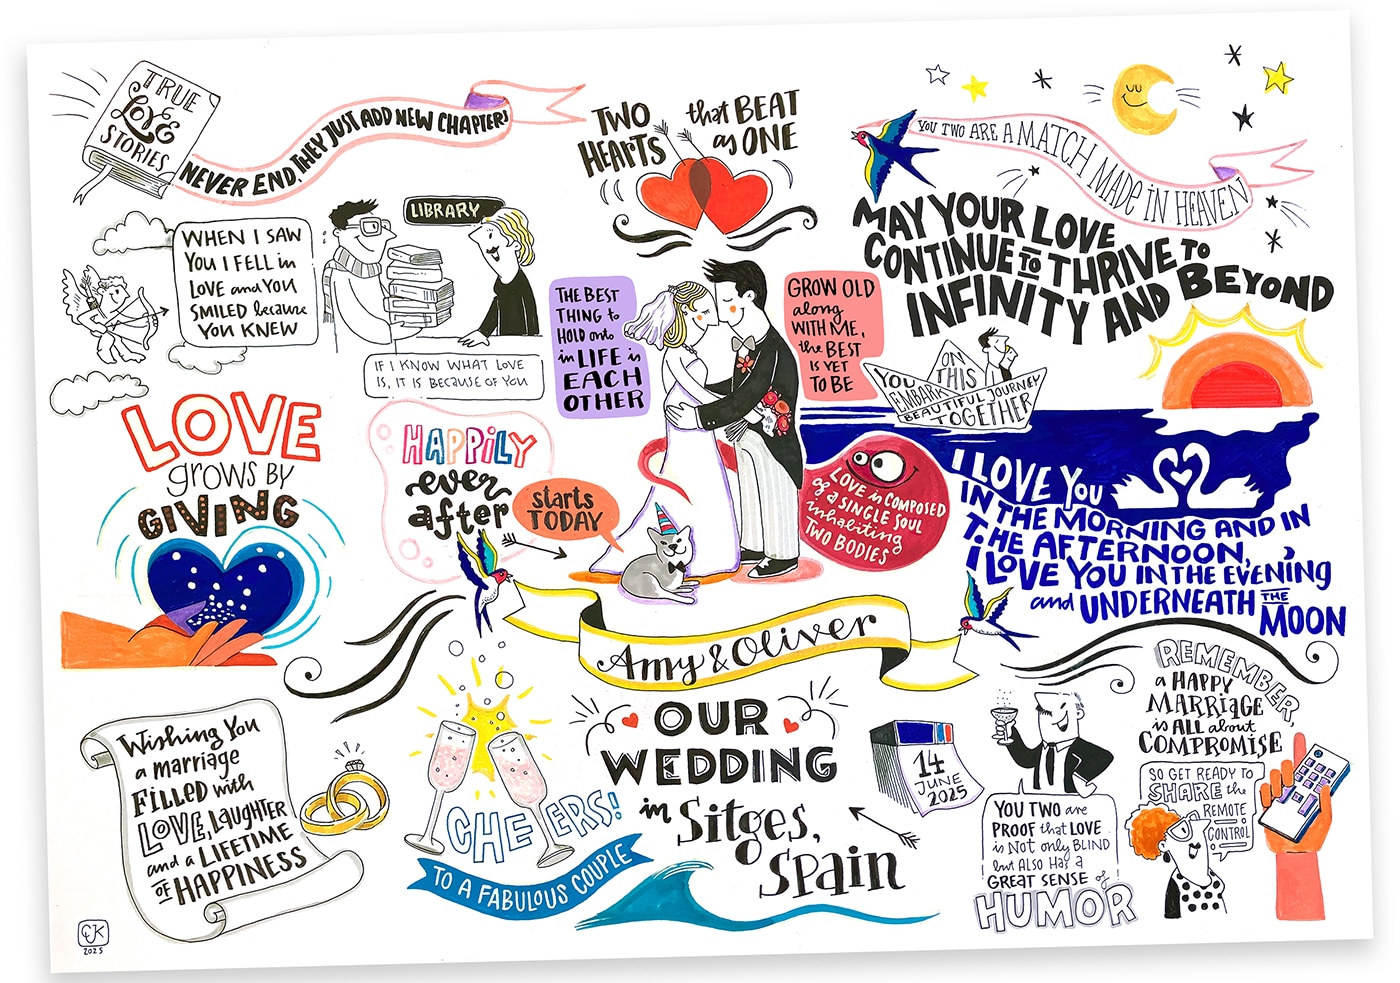 TRUE
Love
STORIES
NEVER END THEY JUST ADD NEW CHAPTERS
TWO
HEARTS
that BEAT
as ONE
YOU TWO ARE A MATCH MADE in HEAVEN
MAY YOUR LOVE
CONTINUE TO THRIVE TO
INFINITY AND BEYOND
WHEN I SAW
YOU I FELL in
LOVE and YOU
SMILED because
YOU KNEW
LIBRARY
IF I KNOW WHAT LOVE
IS, IT IS BECAUSE OF YOU
THE BEST
THING to
HOLD onto
in LIFE is
EACH
OTHER
GROW OLD
along
WITH ME,
the BEST
IS YET
TO BE
YOU
EMBARK
ON
THIS
BEAUTIFUL JOURNEY
TOGETHER
LOVE
grows BY
GIVING
HAPPILY
ever
after
starts
TODAY
LOVE is COMPOSED
of a SINGLE SOUL
inhabiting
TWO BODIES
I LOVE You
IN THE MORNING AND IN
THE AFTERNOON,
I LOVE YOU IN THE EVENING
and UNDERNEATH THE
MOON
Amy & Oliver
OUR
WEDDING
in Sitges,
Spain
14
JUNE
2025
Wishing You
a marriage
FILLED with
LOVE, LAUGHTER
and a LIFETIME
OF HAPPINESS
CHEERS!
TO A FABULOUS COUPLE
YOU TWO are
PROOF that LOVE
is Not only BLIND
but ALSO HAS a
GREAT SENSE of
HUMOR
REMEMBER,
a HAPPY
MARRIAGE
is ALL about
COMPROMISE
SO GET READY TO
SHARE the
REMOTE
CONTROL
CJK
2025